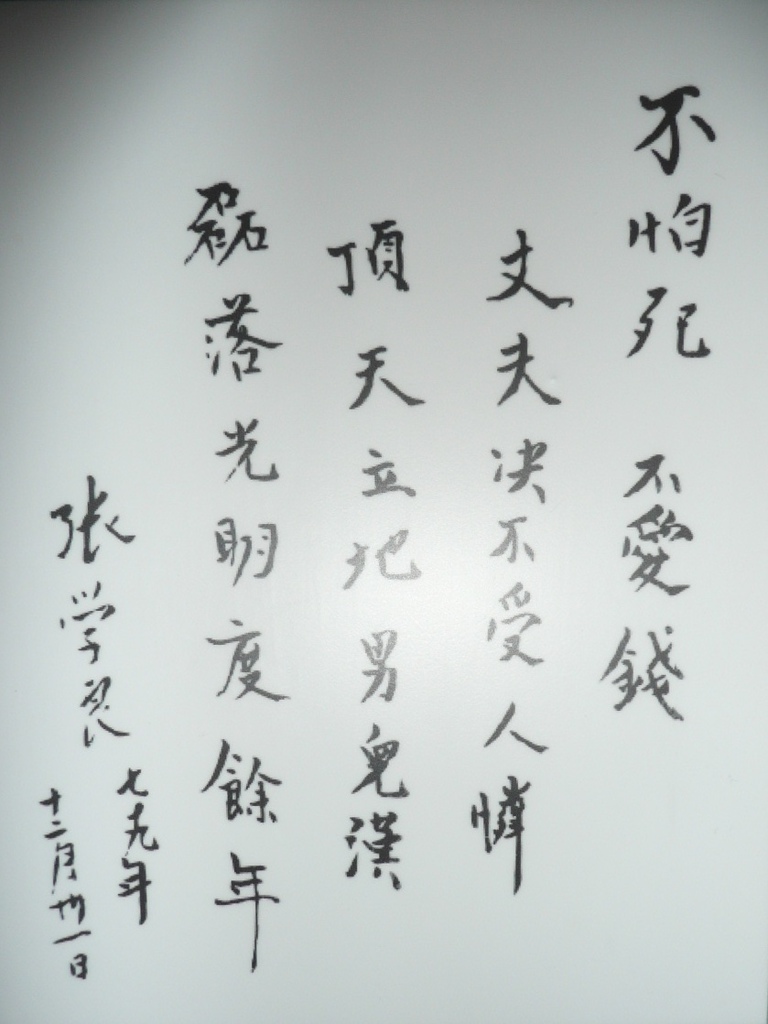 不怕死 不愛錢
丈夫決不受人憐
頂天立地男兒漢
磊落光明度餘年
張学良
七九年
十二月卅一日